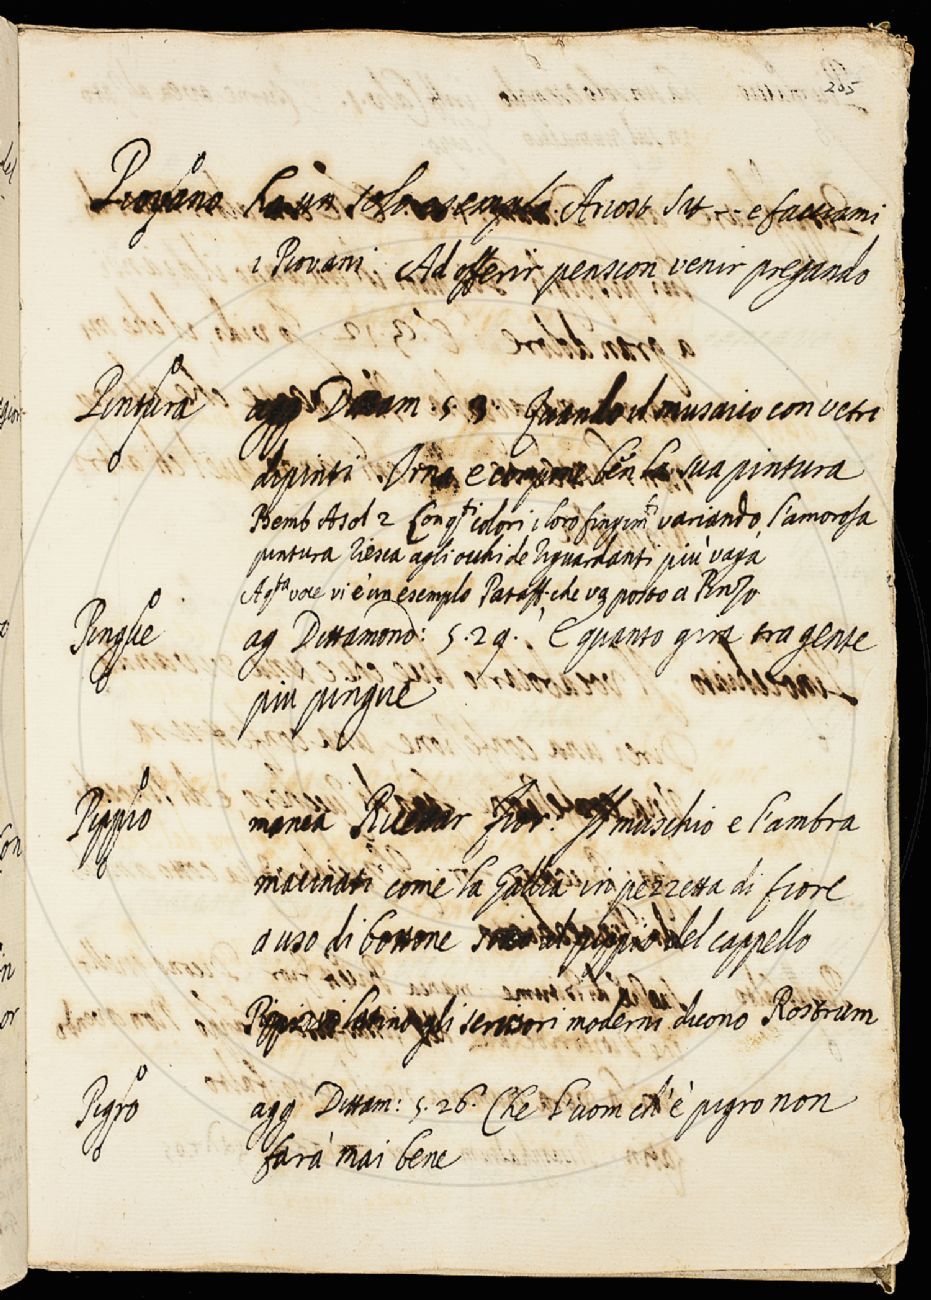 205
Piovano ha un solo esempio Ariost Sat -- e facciami
i Piovani Ad offerir pension venir pregando
Pintura agg Dittam. 5. 3 Quando il musaico con vetri
dipinti Orna e compone ben la sua pintura
Bemb Asol 2 Con q.ti colori i loro fingim.ti variando, l'amorosa
pintura riesca agli occhi de riguardanti più vaga
A q.ta voce vi è un esempio Pataff. che va posto a Pinzo
Pingue ag Dittamond: 5. 29. E quanto gira tra gente
più pingue
Pippio manca Ricettar fior: Il muschio e l'ambra
macinati come la Galbia in pezzetta di fiore
a uso di bottone al pippio del cappello
Pippio latino gli scrittori moderni dicono Rostrum
Pigro agg Dittam: 5. 26. Che l'uom ch'è pigro non
farà mai bene